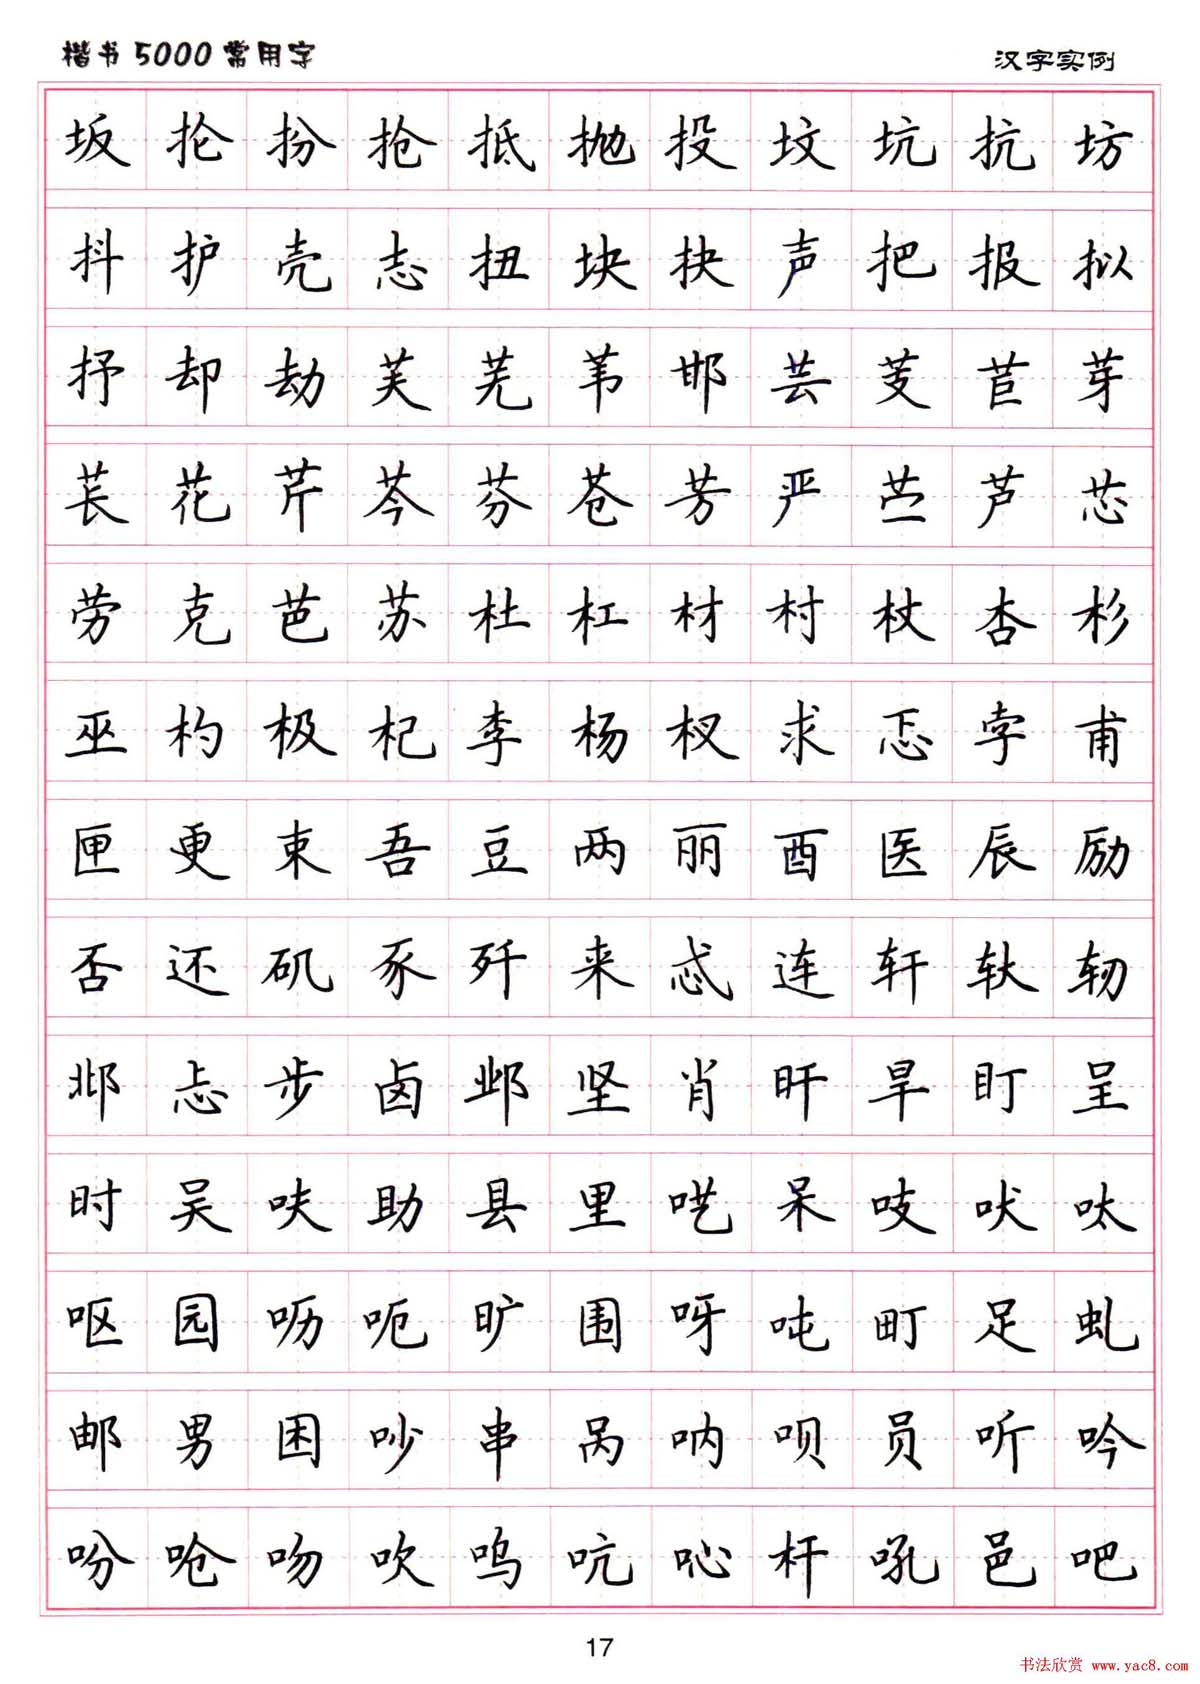 楷书5000常用字
汉字实例
坂抡扮抢抵抛投坟坑抗坊
抖护壳志扭块抉声把报拟
抒却劫芙芜苇邯芸芰苣芽
苌花芹芩芬苍芳严苎芦芯
劳克芭苏杜杠材村杖杏杉
巫杓极杞李杨杈求忑孛甫
匣更束吾豆两丽酉医辰励
否还矶豖歼来忒连轩轪轫
邶忐步卤邺坚肖旰旱盯呈
时吴呋助县里呓呆吱吠呔
呕园呖呃旷围呀吨町足虬
邮男困吵串呙呐呗员听吟
吩呛吻吹呜吭吣杆吼邑吧
17
书法欣赏 www.yac8.com